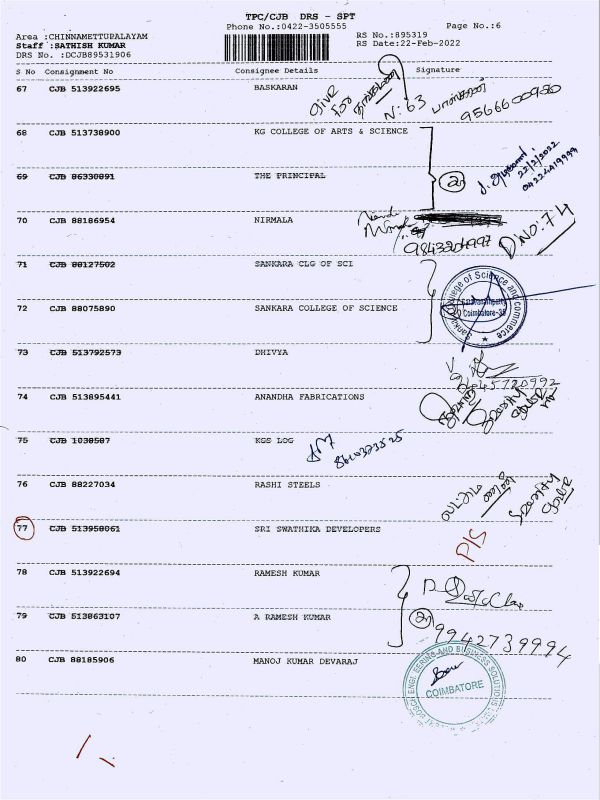 TPC/CJB DRS - SPT
Phone No.:0422-3505555
Page No.:6
Area :CHINNAMETTUPALAYAM
RS No.:895319
Staff :SATHISH KUMAR
RS Date:22-Feb-2022
DRS No. :DCJB89531906
S No Consignment No Consignee Details Signature
67 CJB 513922695 BASKARAN
Give for
N: 63
9566600980
68 CJB 513738900 KG COLLEGE OF ARTS & SCIENCE
69 CJB 86330891 THE PRINCIPAL
22/2/2022
04224419999
70 CJB 88186954 NIRMALA
9843204997
D NO: 74
71 CJB 88127502 SANKARA CLG OF SCI
72 CJB 88075890 SANKARA COLLEGE OF SCIENCE
Sankara College of Science and commerce
Saravanampatty
Coimbatore-35
73 CJB 513792573 DHIVYA
74 CJB 513895441 ANANDHA FABRICATIONS
75 CJB 1038587 KGS LOG
76 CJB 88227034 RASHI STEELS
77 CJB 513958061 SRI SWATHIKA DEVELOPERS
78 CJB 513922694 RAMESH KUMAR
79 CJB 513863107 A RAMESH KUMAR
9942739994
80 CJB 88185906 MANOJ KUMAR DEVARAJ
ENGINEERING AND BUSINESS SOLUTIONS
COIMBATORE